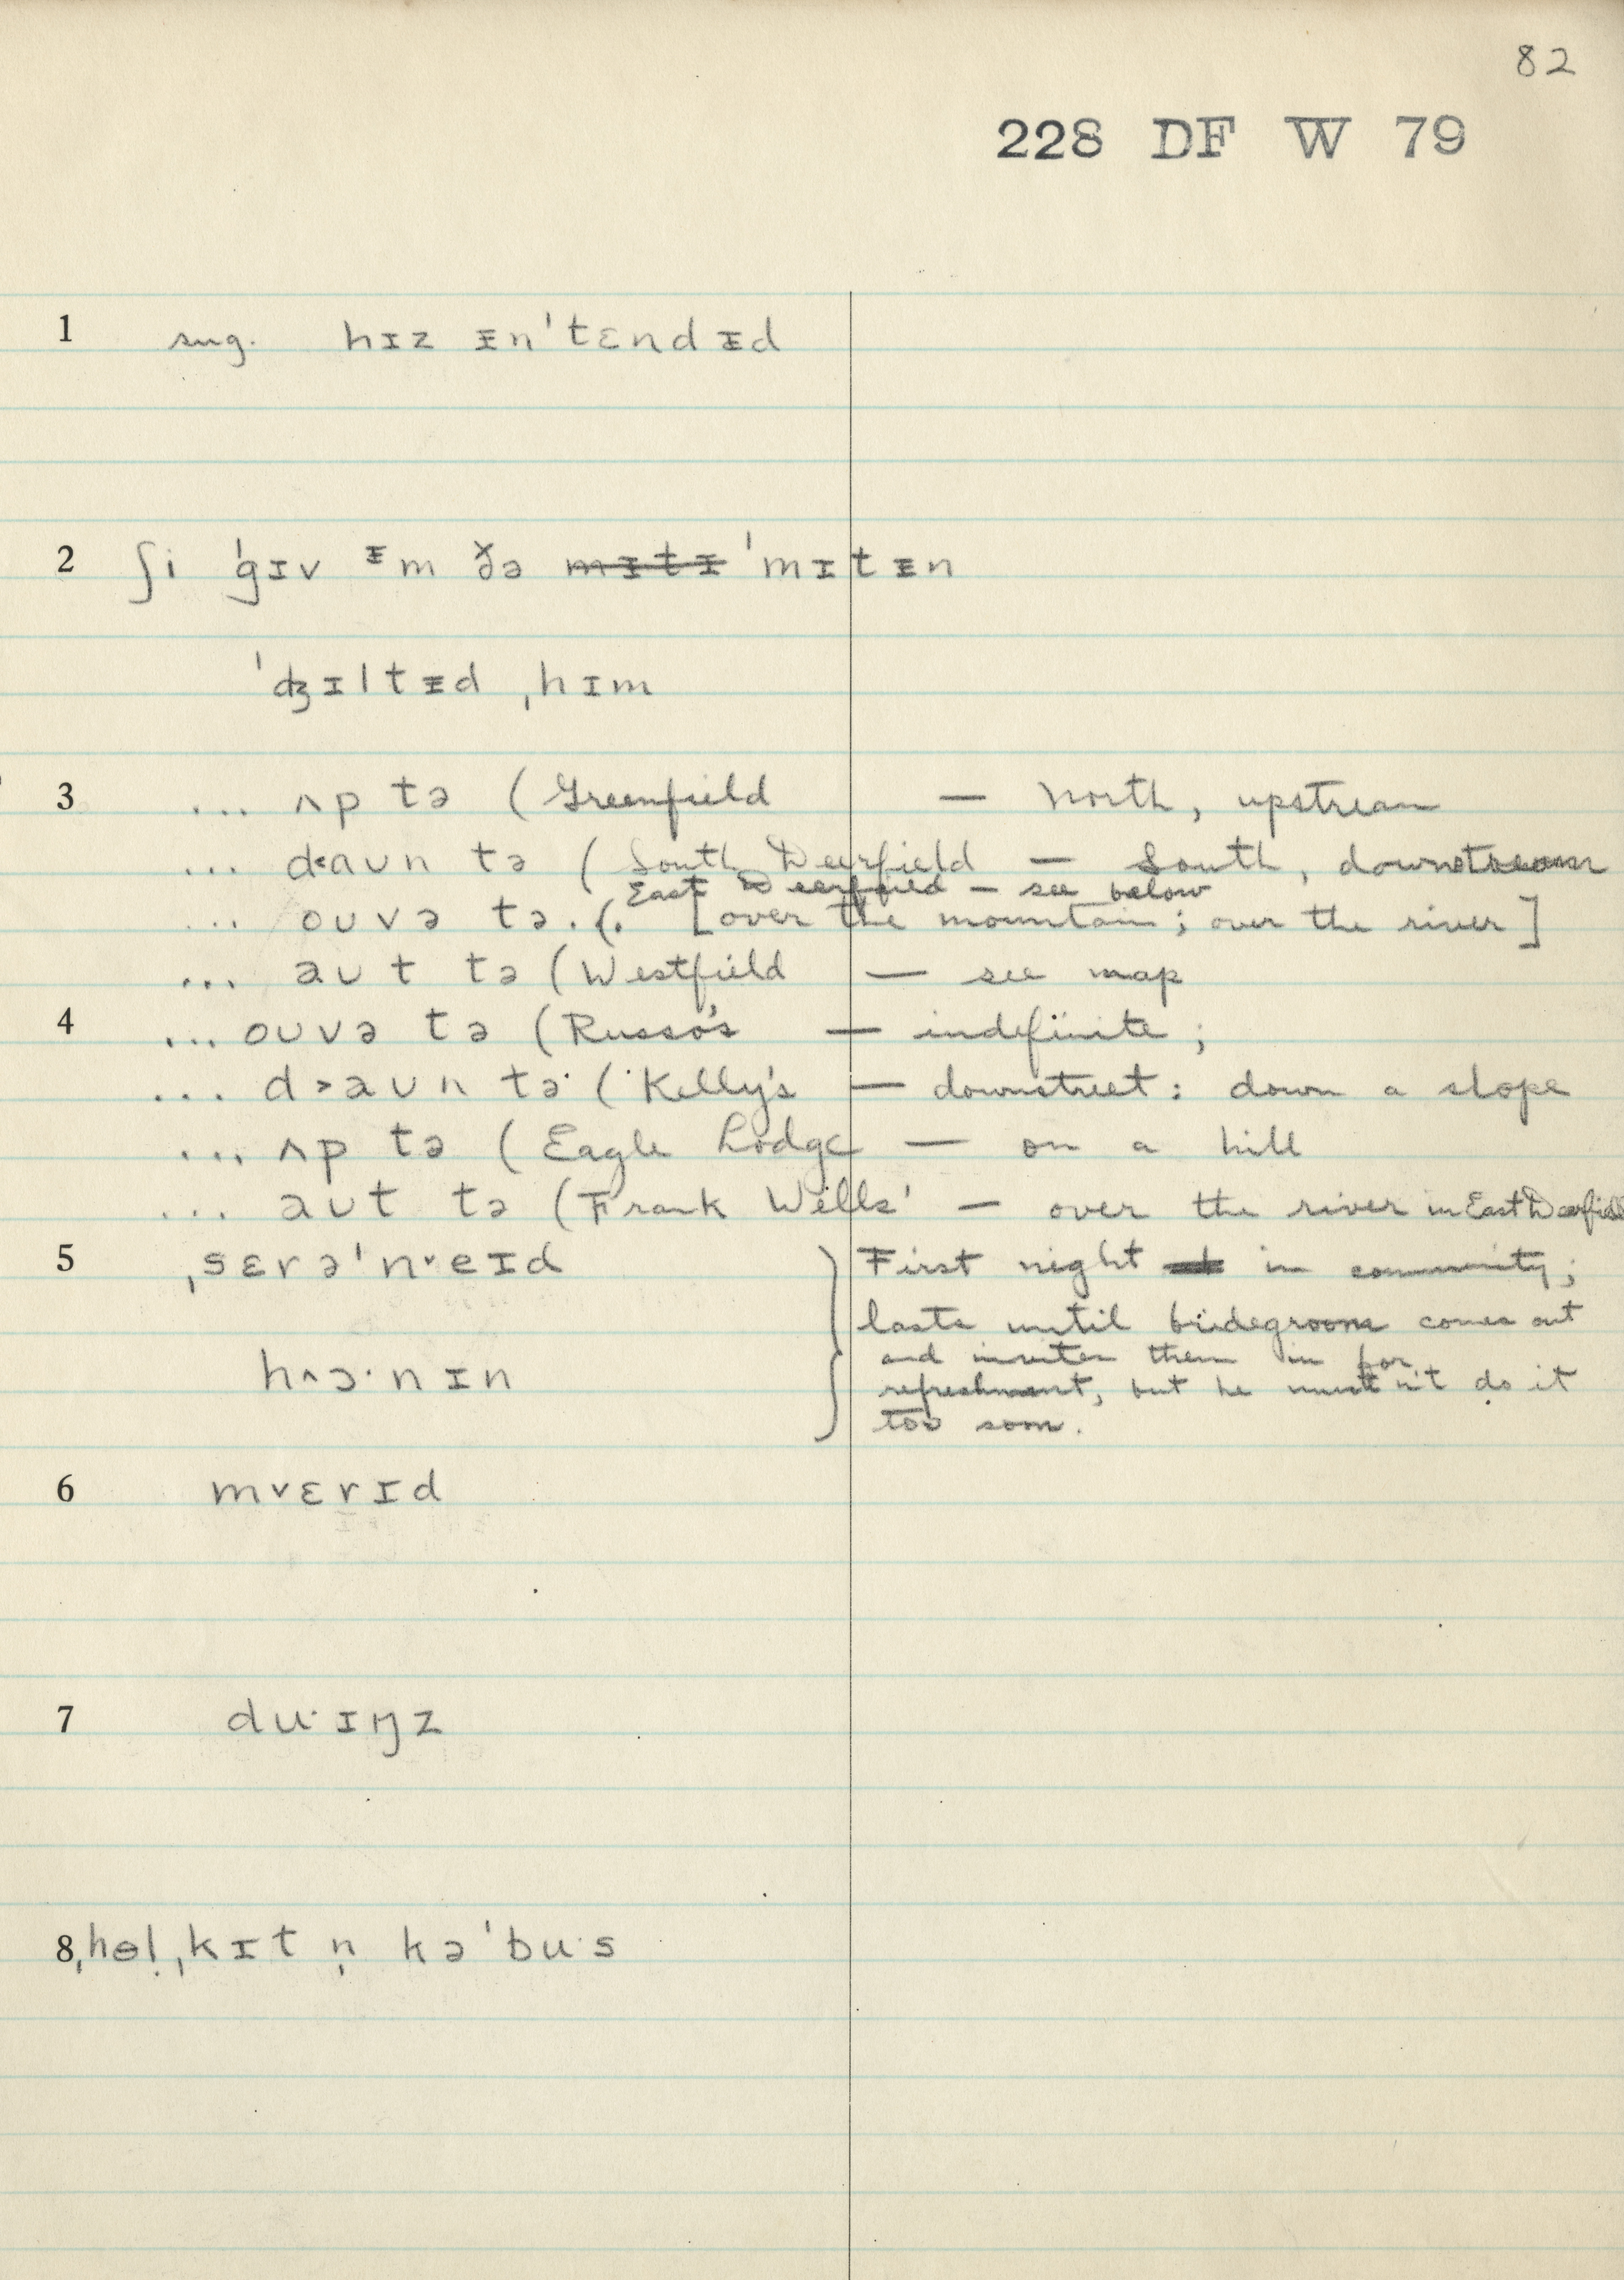 82
228 DF W 79
1 sug. hɪz ᵻn'tɛndᵻd
2 ʃi 'gɪv ᵻm ðə mɪtɪ 'mɪtᵻn
'ʤɪltᵻd ˌhɪm
3 ... ʌp tə (Greenfield — North, upstream
... d<aʊn tə (South Deerfield — South, downstream
East Deerfield — see below
... oʊvə tə. (. [over the mountain; over the river]
... aʊt tə (Westfield — see map
4 ... oʊvə tə (Russo's — indefinite;
... d>aʊn tə (Kelly's — downstreet: down a slope
... ʌp tə (Eagle Lodge — on a hill
... aʊt tə (Frank Wells' — over the river in East Deerfield
5 ˌsɛrə'n˅eɪd First night in community;
lasts until bridegroom comes out
and invites them in for
h^ɔ·nɪn refreshment, but he mustn't do it
too soon.
6 m˅ɛrɪd
7 du·ɪŋz
8 ˌhol̩ ˌkɪt n̩ kə'bu·s